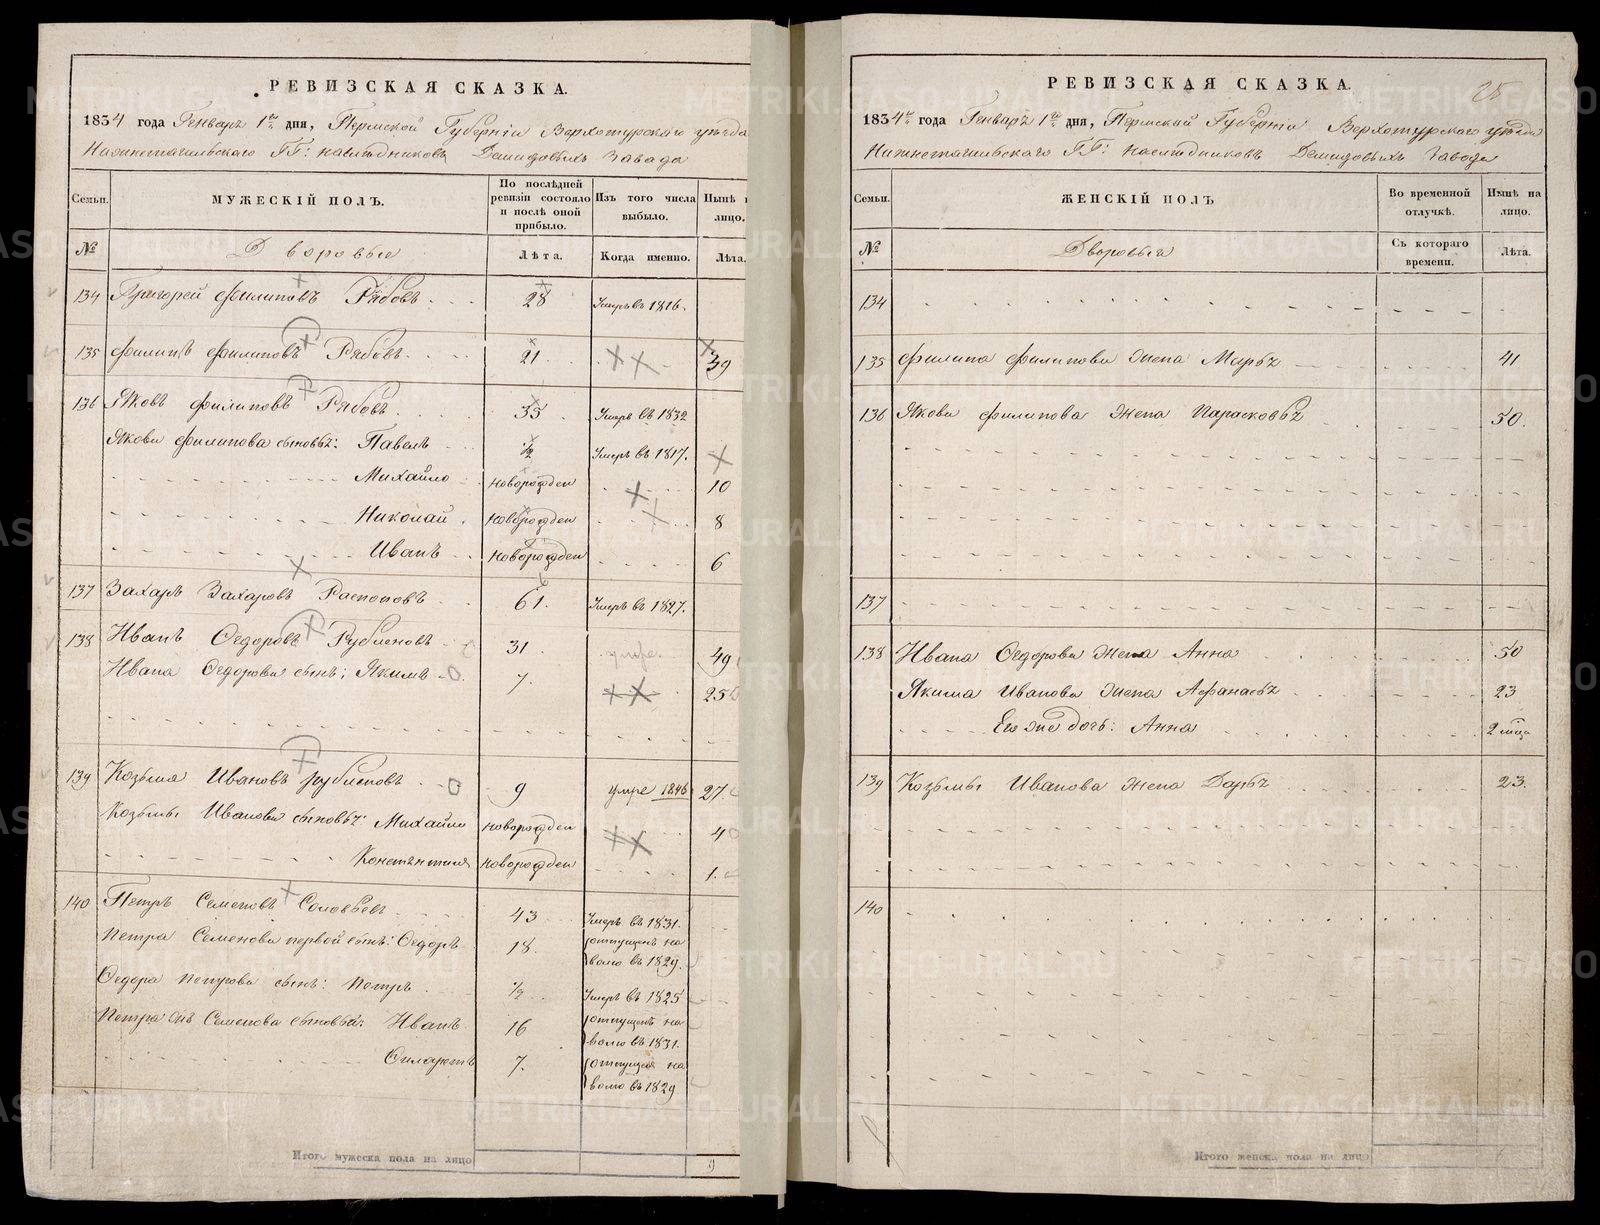 РЕВИЗСКАЯ СКАЗКА.
1834 года Генваря 1го дня, Пермской Губернiи Верхотурскаго уѣзда
Нижнетагильскаго ГГ: наслѣдниковъ Демидовыхъ Завода
Семьи. МУЖЕСКIЙ ПОЛЪ. По послѣдней ревизiи состояло и послѣ оной прибыло. Изъ того числа выбыло. Нынѣ лицо.
№ Дворовые Лѣта. Когда именно. Лѣта.
134 Григорей Филиповъ Рябовъ 28 Умеръ въ 1816.
135 Филипъ Филиповъ Рябовъ 21 39
136 Яковъ Филиповъ Рябовъ 35 Умеръ въ 1832
Якова Филипова сыновья: Павелъ ½ Умеръ въ 1817.
Михайло новорожден 10
Николай новорожден 8
Иванъ новорожден 6
137 Захаръ Захаровъ Распоповъ 61. Умеръ въ 1827.
138 Иванъ Ѳедоровъ Рубленовъ 31 умре 49
Ивана Ѳедорова сынъ: Якимъ 7. 25
139 Козьма Ивановъ Рубленовъ 9 умре 1846 27.
Козьмы Иванова сыновья: Михайло новорожден 4
Констянтинъ новорожден 1.
140 Петръ Семеновъ Соловьевъ 43 Умеръ въ 1831.
Петра Семенова первой сынъ: Ѳедоръ 18 отпущенъ на волю въ 1829.
Ѳедора Петрова сынъ: Петръ ½ Умеръ въ 1825
Петра Семенова сыновья: Иванъ 16 отпущенъ на волю въ 1831.
7. отпущенъ на волю въ 1829
Итого мужеска пола на лицо 9
РЕВИЗСКАЯ СКАЗКА.
25
1834го года Генваря 1го дня, Пермской Губернiи Верхотурскаго уѣзда
Нижнетагильскаго ГГ: наслѣдниковъ Демидовыхъ Завода
Семьи. ЖЕНСКIЙ ПОЛЪ Во временной отлучкѣ. Нынѣ на лицо.
№ Дворовыя Съ котораго времени. Лѣта.
134
135 Филипа Филипова жена Марья 41
136 Якова Филипова жена Парасковья 50.
137
138 Ивана Ѳедорова жена Анна 50
Якима Иванова жена Афанасья 23
Его же дочь: Анна 2 мца
139 Козьмы Иванова жена Дарья 23.
140
Итого женска пола на лицо
METRIKI.GASO-URAL.RU